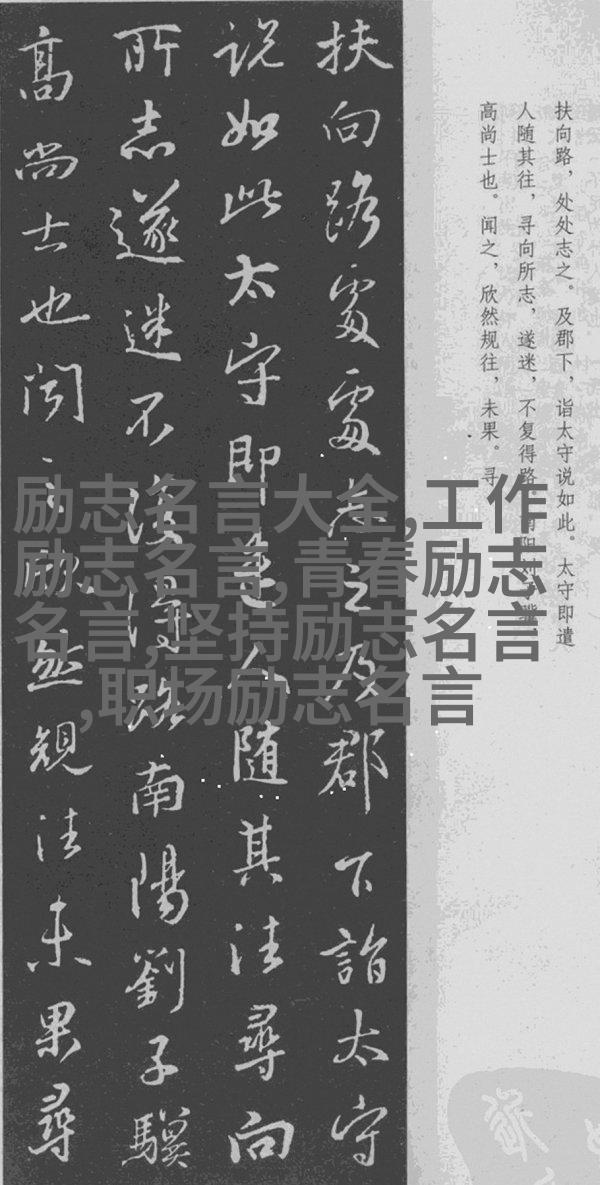 扶向路，处处志之。及郡下，诣太守说如此。太守即遣
人随其往，寻向所志，遂迷，不复得路。南阳刘子骥，
高尚士也。闻之，欣然规往，未果。寻
扶向路處處志之及郡下詣太守
説如此太守即遣人随其往尋向
所志遂迷不復得路南陽劉子驥
高尚士也聞之欣然規往未果尋
励志名言大全,工作
励志名言,青春励志
名言,坚持励志名言
,职场励志名言